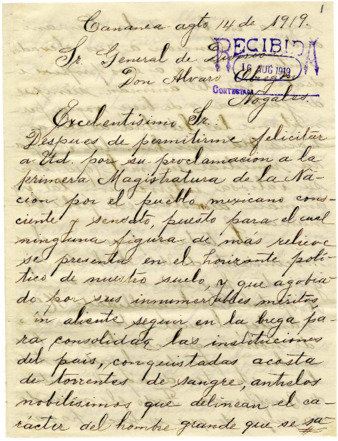 1
Cananea agto. 14 de 1919.
Sr. General de Division
RECIBIDA
16 AUG 1919
Don Alvaro Obregon
CONTESTADA
Nogales.
Excelentisimo Sr.
Despues de permitirme felicitar
a Ud. por su proclamación a la
primera Magistratura de la Na-
cion por el pueblo mexicano cons-
ciente y sensato, puesto para el cual
ninguna figura de mas relieve
se presenta en el horizonte polí-
tico de nuestro suelo, y que agobia-
do por sus innumerables méritos,
in aliente seguir en la brega pa-
ra, consolidar las instituciones
del pais, conquistadas acosta
de torrentes de sangre, anhelos
nobilísimos que delinean el ca-
rácter del hombre grande que se sa-